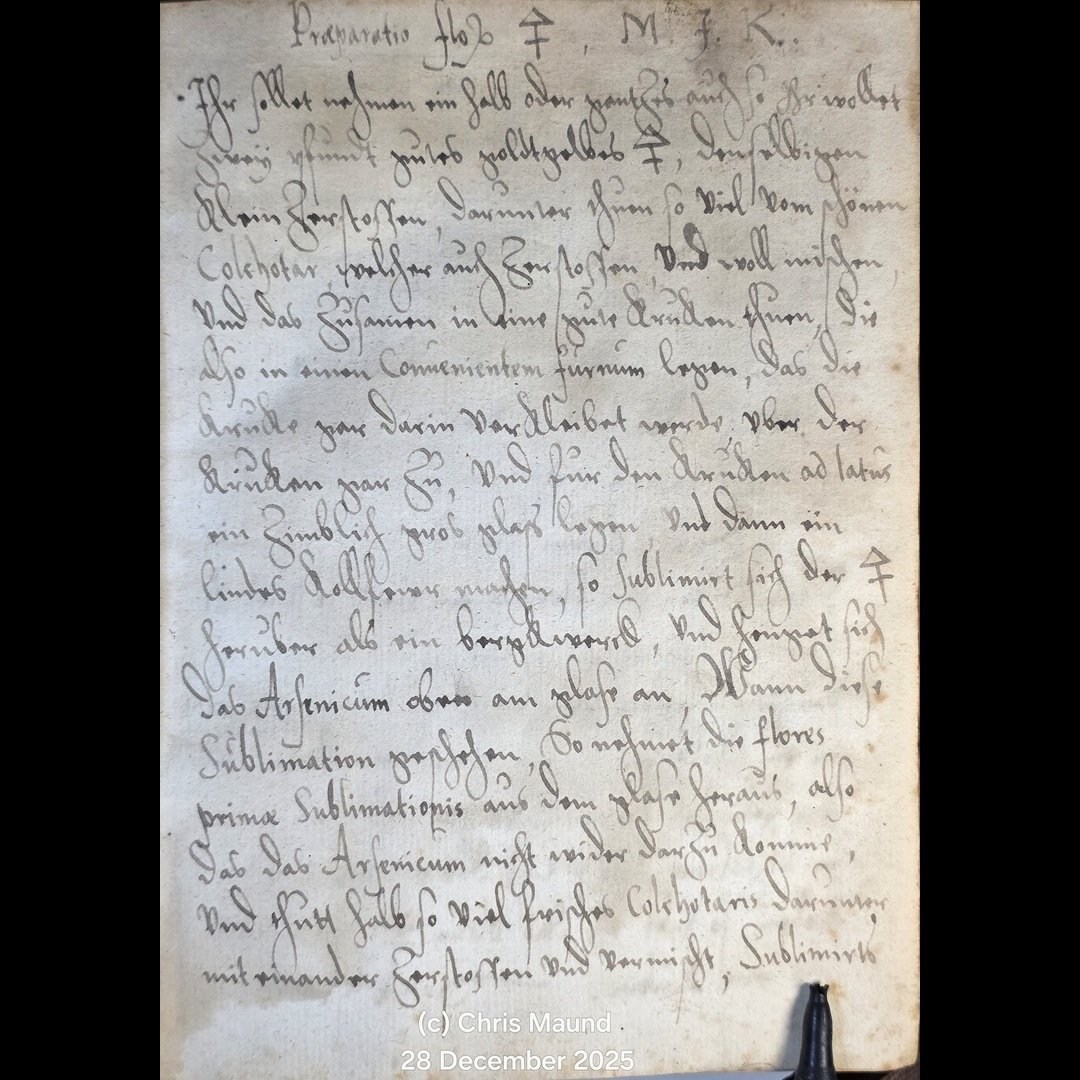 Præparatio flor 🜍, M. J. K.
Ihr sollet nehmen ein halb oder gantzes auch so Ihr wollet
zweÿ pfundt gutes goldtgelbes 🜍, denselbigen
klein Zerstossen, darunter thuen so viel vom schönen
Colchotar, welcher auch Zerstossen, Vnd woll mischen,
Vnd das Zusamen in eine gute Kruken thuen, die
also in einen Conuenientem furnum legen, das die
Kruke gar darin Verkleibet werde, vber der
Kruken gar Zu, Vnd fur den Kruken ad latus
ein Zimblich gros glass legen, Vnd dann ein
lindes Kollfewr machen, so Sublimirt sich der 🜍
heruber als ein bergkwerck, Vnd henget sich
das Arsenicum oben am glase an, Wann diese
Sublimation geschehen, So nehmet die flores
primæ Sublimationis aus dem glase heraus, also
das das Arsenicum nicht wider darzu komme,
Vnd thutt halb so viel frisches Colchotaris darunter
mit einander Zerstossen Vnd vermischt, Sublimirts
(c) Chris Maund
28 December 2025